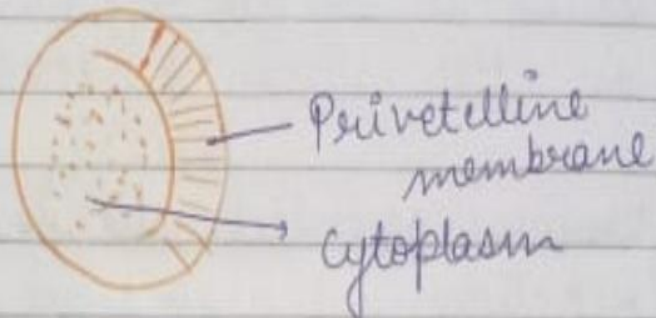 Privetelline
membrane
cytoplasm